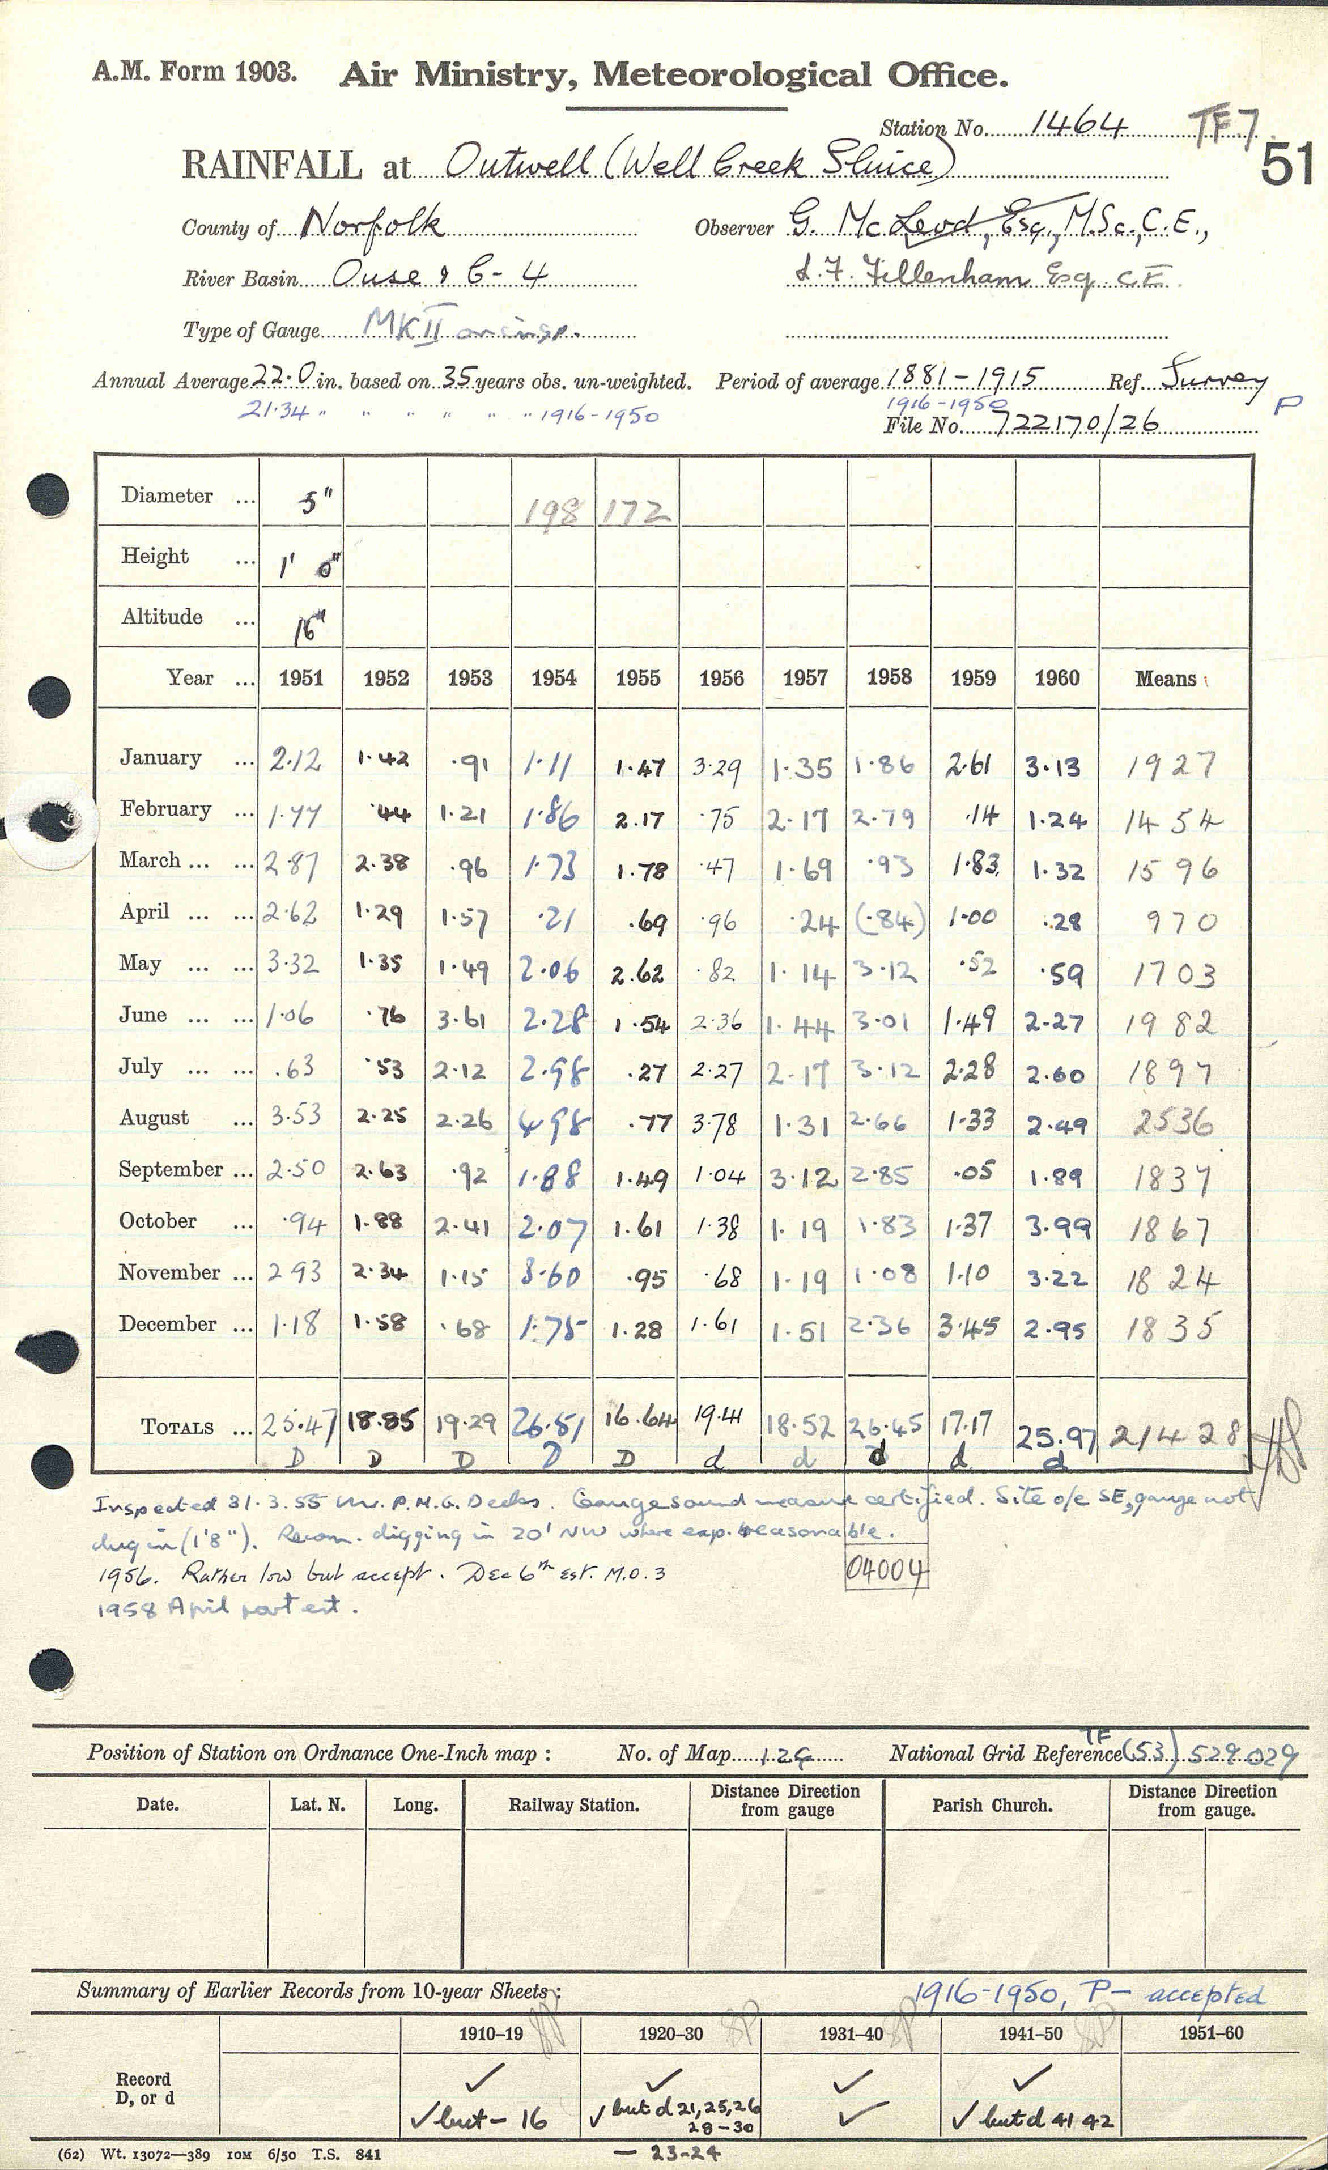 A.M. Form 1903. Air Ministry, Meteorological Office.
Station No. 1464 TF7
51
RAINFALL at Outwell (Well Creek Sluice)
County of Norfolk Observer G. McLeod, Esq., M.Sc., C.E.,
River Basin Ouse & C-4 L.F. Fillenham Esq. C.E.
Type of Gauge MKII on insp.
Annual Average 22.0 in. based on 35 years obs. un-weighted. Period of average 1881-1915 Ref. Survey
21.34 " " " " " " 1916-1950 1916-1950 P
File No. 722170/26
Diameter ... 5" 198 172
Height ... 1' 0"
Altitude ... 16"
Year ... 1951 1952 1953 1954 1955 1956 1957 1958 1959 1960 Means
January ... 2.12 1.42 .91 1.11 1.47 3.29 1.35 1.86 2.61 3.13 1927
February ... 1.77 .44 1.21 1.86 2.17 .75 2.17 2.79 .14 1.24 1454
March ... ... 2.87 2.38 .96 1.73 1.78 .47 1.69 .93 1.83 1.32 1596
April ... ... 2.62 1.29 1.57 .21 .69 .96 .24 (.84) 1.00 .28 970
May ... ... 3.32 1.35 1.49 2.06 2.62 .82 1.14 3.12 .52 .59 1703
June ... ... 1.06 .76 3.61 2.28 1.54 2.36 1.44 3.01 1.49 2.27 1982
July ... ... .63 .53 2.12 2.98 .27 2.27 2.17 3.12 2.28 2.60 1897
August ... 3.53 2.25 2.26 4.98 .77 3.78 1.31 2.66 1.33 2.49 2536
September ... 2.50 2.63 .92 1.88 1.49 1.04 3.12 2.85 .05 1.89 1837
October ... .94 1.88 2.41 2.07 1.61 1.38 1.19 1.83 1.37 3.99 1867
November ... 2.93 2.34 1.15 3.60 .95 .68 1.19 1.08 1.10 3.22 1824
December ... 1.18 1.58 .68 1.75 1.28 1.61 1.51 2.36 3.45 2.95 1835
TOTALS ... 25.47 18.85 19.29 26.51 16.64 19.41 18.52 26.45 17.17 25.97 21428
D D D D D d d d d d
Inspected 31.3.55 Mr. P.M.G. Decks. Gauge sound measure certified. Site o/e SE, gauge not
dug in (1'8"). Recom. digging in 20' NW where exp. reasonable.
1956. Rather low but accept. Dec 6th est. M.O.3
04004
1958 April part est.
Position of Station on Ordnance One-Inch map : No. of Map 124 National Grid Reference TF (53) 529029
Date. Lat. N. Long. Railway Station. Distance from gauge Direction Parish Church. Distance from gauge. Direction
Summary of Earlier Records from 10-year Sheets: 1916-1950, P- accepted
1910-19 1920-30 1931-40 1941-50 1951-60
Record ✓ ✓ ✓ ✓
D, or d ✓ but - 16 ✓ but d 21, 25, 26 ✓ ✓ but d 41 42
28-30
- 23-24
(62) Wt. 13072—389 10M 6/50 T.S. 841